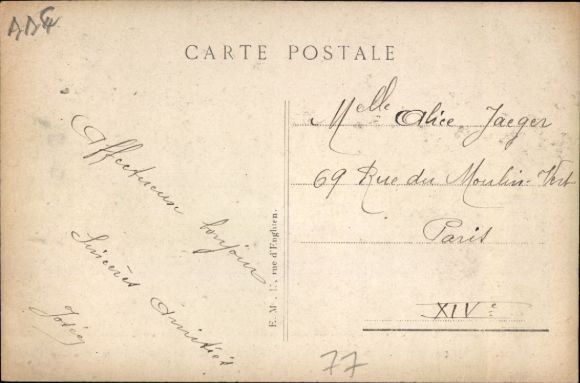 CARTE POSTALE
Affectueux bonjour
Sincères Amitiés
E. M., rue d'Enghien.
Melle Alice Jaeger
69 Rue du Moulin-Vert
Paris
XIVe
77